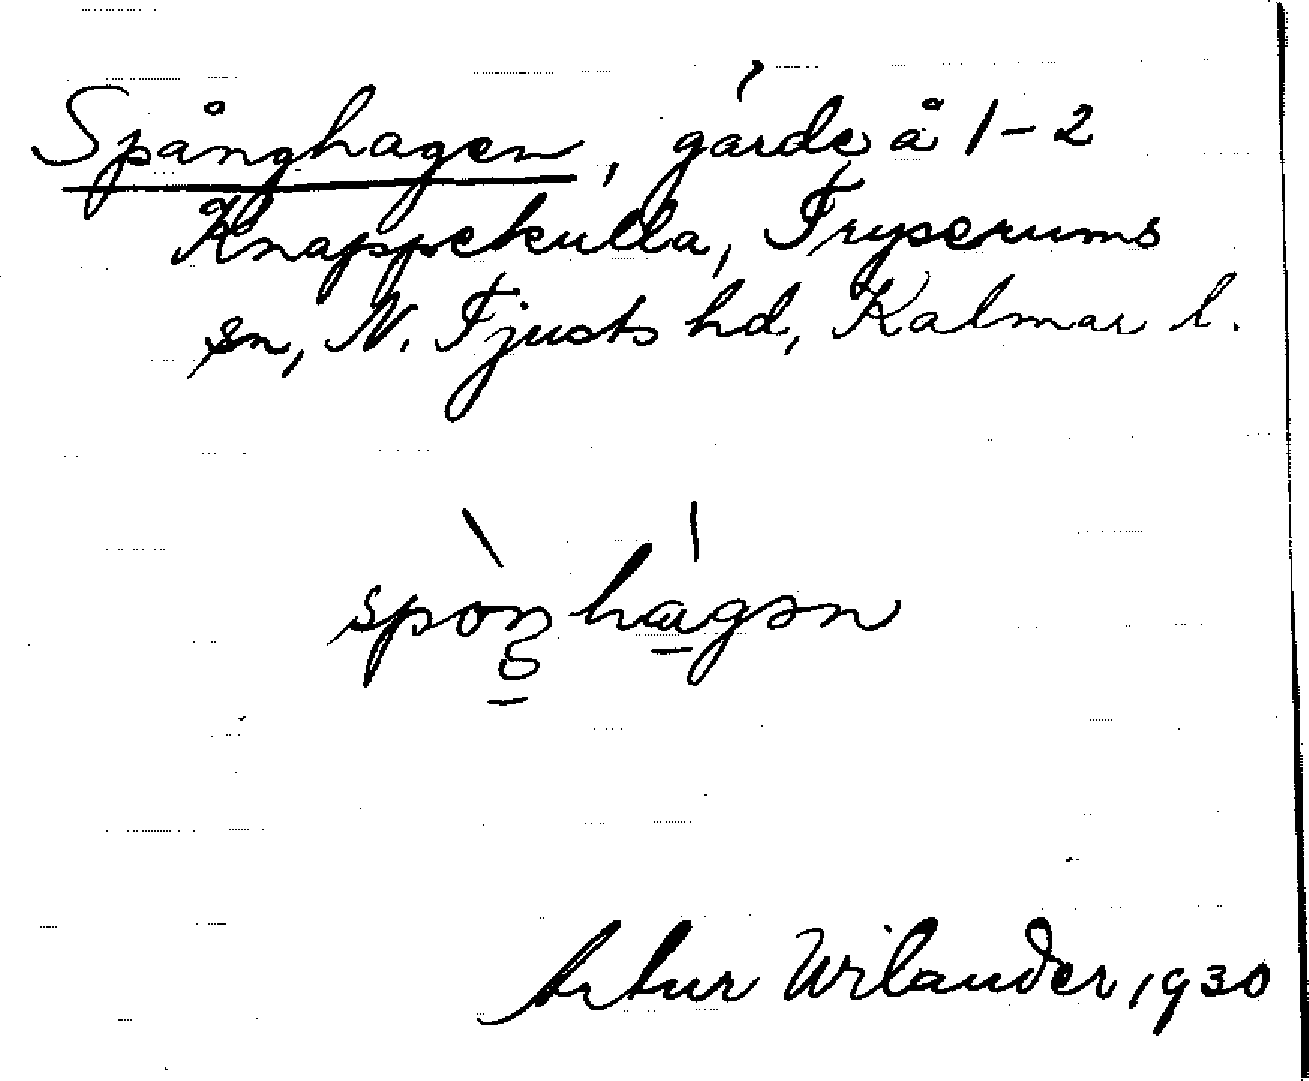 Spånghagen, gärde å 1-2
Knappekulla, Tryserums
sn, N. Tjusts hd, Kalmar l.
spòŋhagən
Artur Wilander, 1930